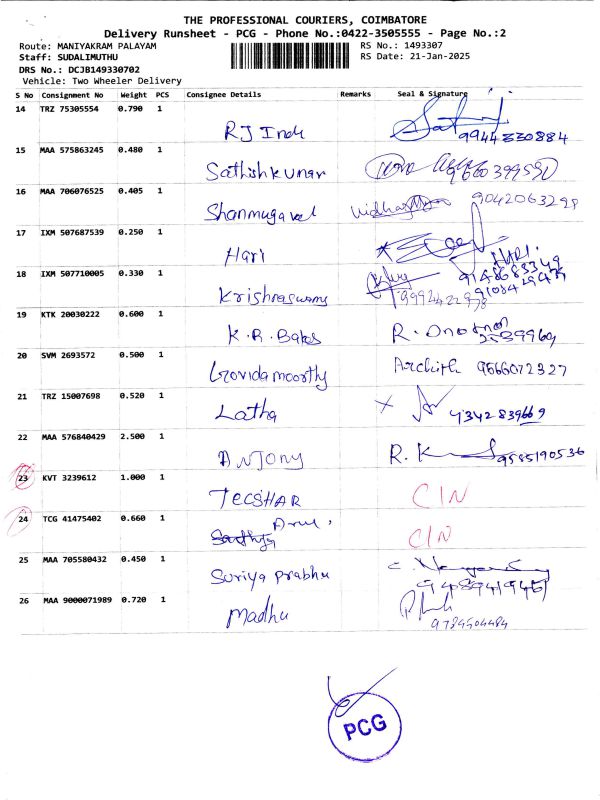 THE PROFESSIONAL COURIERS, COIMBATORE
Delivery Runsheet - PCG - Phone No.:0422-3505555 - Page No.:2
Route: MANIYAKRAM PALAYAM
RS No.: 1493307
Staff: SUDALIMUTHU
RS Date: 21-Jan-2025
DRS No.: DCJB149330702
Vehicle: Two Wheeler Delivery
S No Consignment No Weight PCS Consignee Details Remarks Seal & Signature
14 TRZ 75305554 0.790 1
RJ Inde 9944330884
15 MAA 575863245 0.480 1
Sathishkumar
16 MAA 706076525 0.405 1
Shanmugavel 9042063298
17 IXM 507687539 0.250 1
Hari HARI
9148683349
18 IXM 507710005 0.330 1
Krishnaswamy
19 KTK 20030222 0.600 1
K.R. Babs R.
20 SVM 2693572 0.500 1
Govidamoorthy Archith 9566072327
21 TRZ 15007698 0.520 1
Latha X 9342839669
22 MAA 576840429 2.500 1
ANTONY R. K 9585190536
23 KVT 3239612 1.000 1
TECSHAR CIN
24 TCG 41475402 0.660 1
Arul CIN
25 MAA 705580432 0.450 1
Suriya prabhu
9489419451
26 MAA 9000071989 0.720 1
Madhu
9784504484
PCG